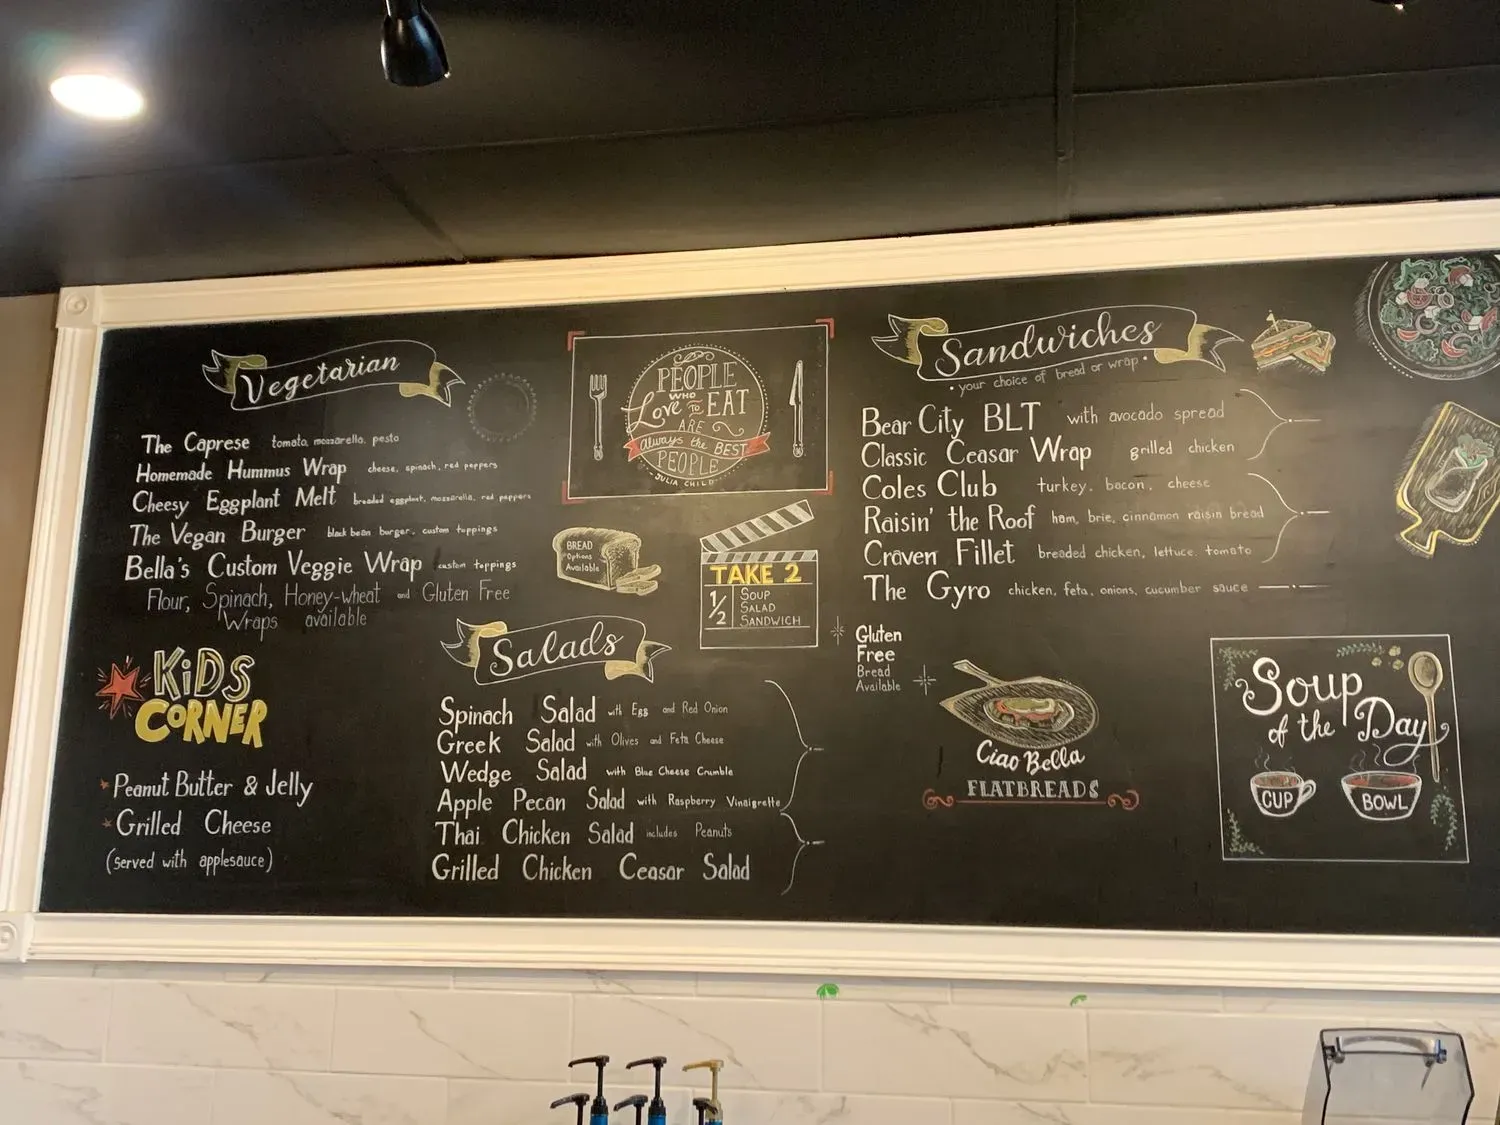 Vegetarian
The Caprese tomato, mozzarella, pesto
Homemade Hummus Wrap cheese, spinach, red peppers
Cheesy Eggplant Melt breaded eggplant, mozzarella, red peppers
The Vegan Burger black bean burger, custom toppings
Bella's Custom Veggie Wrap custom toppings
Flour, Spinach, Honey-wheat and Gluten Free
Wraps available
KiDS
CORNER
Peanut Butter & Jelly
Grilled Cheese
(served with applesauce)
PEOPLE
WHO
Love to EAT
ARE
always the BEST
PEOPLE
- JULIA CHILD -
BREAD
Options
Available
TAKE 2
1/2
SOUP
SALAD
SANDWICH
Salads
Spinach Salad with Egg and Red Onion
Greek Salad with Olives and Feta Cheese
Wedge Salad with Blue Cheese Crumble
Apple Pecan Salad with Raspberry Vinaigrette
Thai Chicken Salad includes Peanuts
Grilled Chicken Ceasar Salad
Sandwiches
• your choice of bread or wrap •
Bear City BLT with avocado spread
Classic Ceasar Wrap grilled chicken
Coles Club turkey, bacon, cheese
Raisin' the Roof ham, brie, cinnamon raisin bread
Craven Fillet breaded chicken, lettuce, tomato
The Gyro chicken, feta, onions, cucumber sauce
Gluten
Free
Bread
Available
Ciao Bella
FLATBREADS
Soup
of the Day
CUP
BOWL